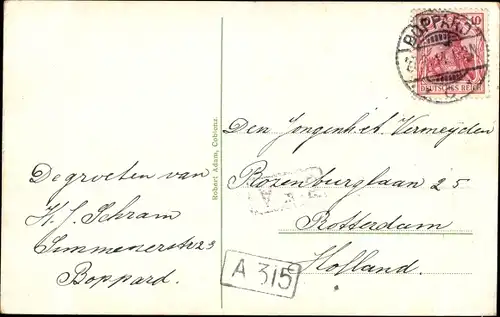 10
BOPPARD
DEUTSCHES REICH
De groeten van
H. J. Schram
Simmenerstr 23
Boppard.
Robert Adam, Coblenz.
Den Jongenh. et. Vermeyden
Rozenburglaan 25
Rotterdam
Holland.
A 315